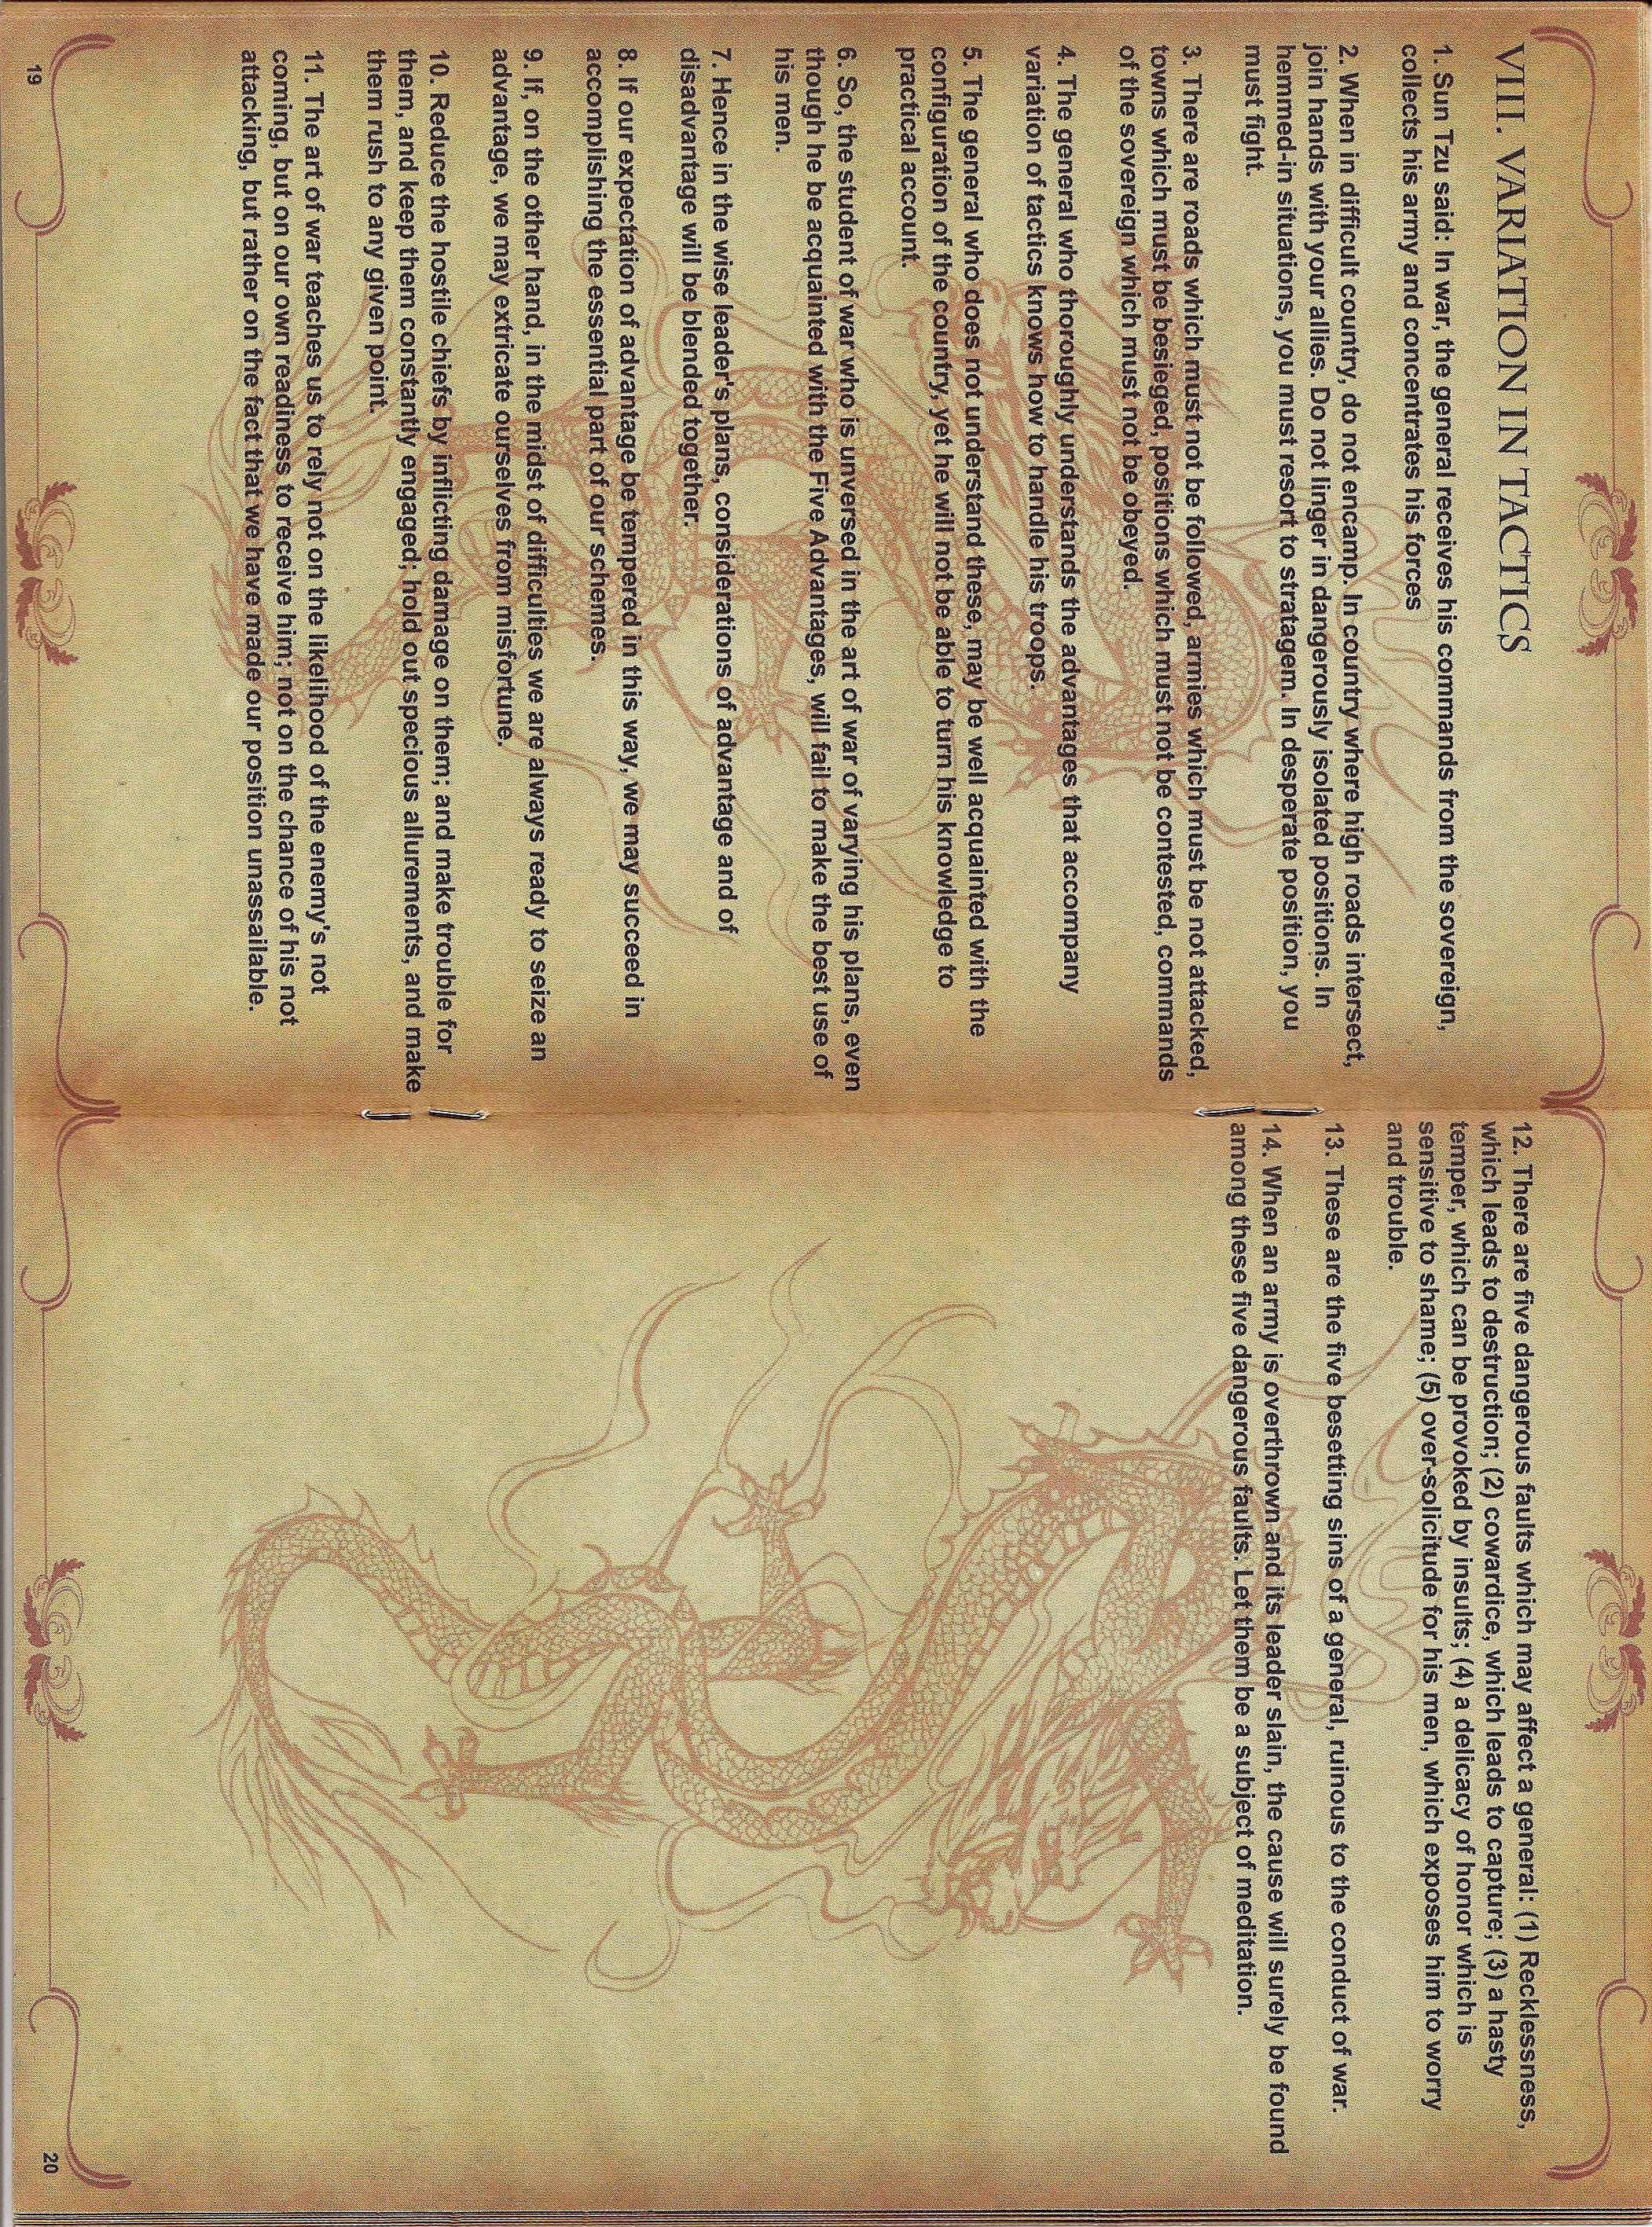 VIII. VARIATION IN TACTICS
1. Sun Tzu said: In war, the general receives his commands from the sovereign,
collects his army and concentrates his forces
2. When in difficult country, do not encamp. In country where high roads intersect,
join hands with your allies. Do not linger in dangerously isolated positions. In
hemmed-in situations, you must resort to stratagem. In desperate position, you
must fight.
3. There are roads which must not be followed, armies which must be not attacked,
towns which must be besieged, positions which must not be contested, commands
of the sovereign which must not be obeyed.
4. The general who thoroughly understands the advantages that accompany
variation of tactics knows how to handle his troops.
5. The general who does not understand these, may be well acquainted with the
configuration of the country, yet he will not be able to turn his knowledge to
practical account.
6. So, the student of war who is unversed in the art of war of varying his plans, even
though he be acquainted with the Five Advantages, will fail to make the best use of
his men.
7. Hence in the wise leader's plans, considerations of advantage and of
disadvantage will be blended together.
8. If our expectation of advantage be tempered in this way, we may succeed in
accomplishing the essential part of our schemes.
9. If, on the other hand, in the midst of difficulties we are always ready to seize an
advantage, we may extricate ourselves from misfortune.
10. Reduce the hostile chiefs by inflicting damage on them; and make trouble for
them, and keep them constantly engaged; hold out specious allurements, and make
them rush to any given point.
11. The art of war teaches us to rely not on the likelihood of the enemy's not
coming, but on our own readiness to receive him; not on the chance of his not
attacking, but rather on the fact that we have made our position unassailable.
19
12. There are five dangerous faults which may affect a general: (1) Recklessness,
which leads to destruction; (2) cowardice, which leads to capture; (3) a hasty
temper, which can be provoked by insults; (4) a delicacy of honor which is
sensitive to shame; (5) over-solicitude for his men, which exposes him to worry
and trouble.
13. These are the five besetting sins of a general, ruinous to the conduct of war.
14. When an army is overthrown and its leader slain, the cause will surely be found
among these five dangerous faults. Let them be a subject of meditation.
20